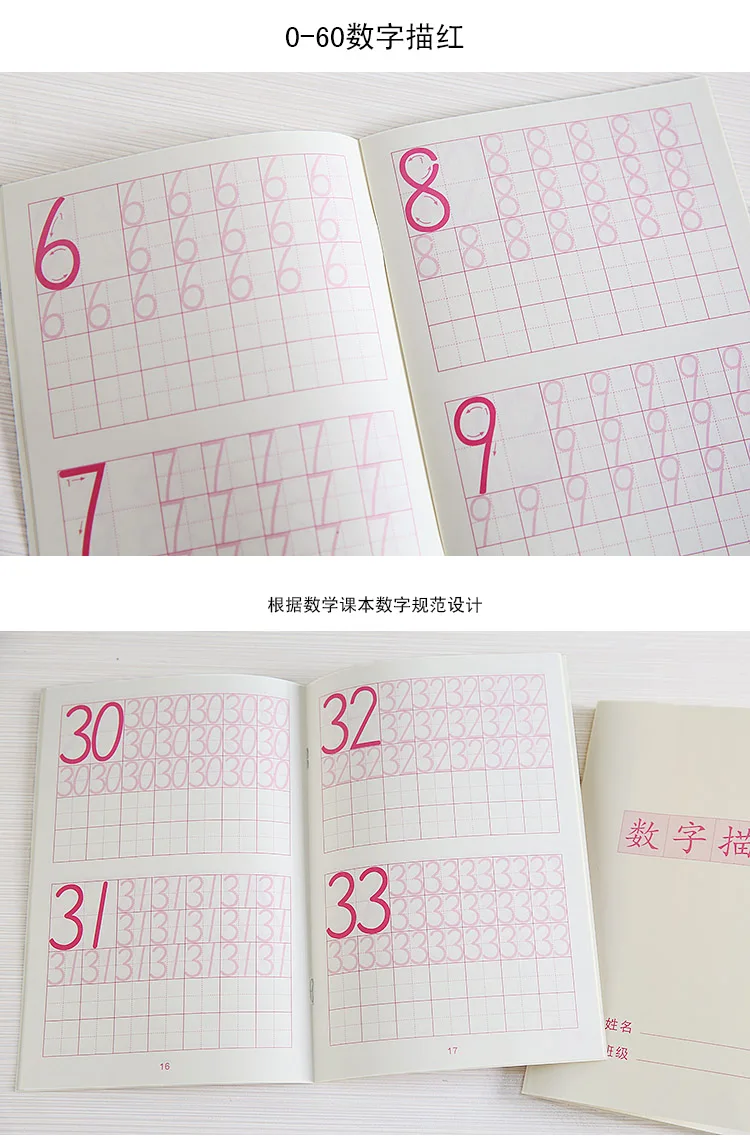 0-60数字描红
6 6 6 6 6 6
6 6 6 6 6
6 6 6 6 6 6 6
7 7 7 7 7 7
7 7 7 7 7
8 8 8 8 8 8
8 8 8 8 8
8 8 8 8 8 8 8
9 9 9 9 9 9
9 9 9 9 9
9 9 9 9 9 9
根据数学课本数字规范设计
30 30 30 30 30 30
30 30 30 30 30
30 30 30 30 30 30 30
31 31 31 31 31 31
31 31 31 31 31
31 31 31 31 31 31 31
16
32 32 32 32 32 32
32 32 32 32 32
32 32 32 32 32 32 32
33 33 33 33 33 33
33 33 33 33 33
33 33 33 33 33 33 33
17
数字描
姓名
班级